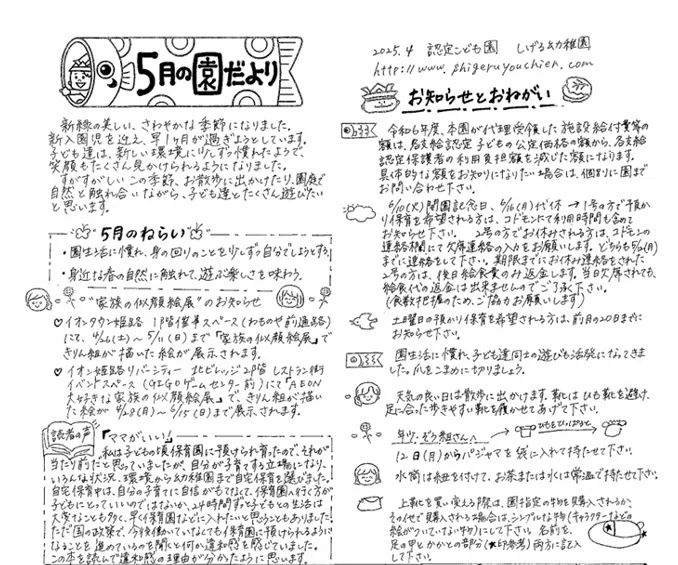 5月の園だより
新緑の美しい、さわやかな季節になりました。
新入園児を迎え、早1ヶ月が過ぎようとしています。
子ども達は、新しい環境に少しずつ慣れたようで、
笑顔もたくさん見かけられるようになりました。
すがすがしいこの季節、お散歩に出かけたり、園庭で
自然と触れ合いながら、子ども達とたくさん遊びたい
と思います。
"5月のねらい"
・園生活に慣れ、身の回りのことを少しずつ自分でしようとする。
・身近な春の自然に触れて、遊ぶ楽しさを味わう。
"家族の似顔絵展"のお知らせ
♡イオンタウン姫路 1階催事スペース(わものや前通路)
にて、4/26(土)~5/11(日)まで「家族の似顔絵展」で
きりん組が描いた絵が展示されます。
♡イオン姫路リバーシティー 北ビレッジ2階 レストラン街
イベントスペース(GIGOゲームセンター前)にて「AEON
大好きな家族の似顔絵展」で、きりん組が描い
た絵が4/28(月)~6/15(日)まで展示されます。
読者の声
「ママがいい!」
私は子どもの頃保育園に預けられ育ったので、それが
当たり前だと思っていましたが、自分が子育てする立場になり、
いろんな状況、環境から幼稚園まで自宅保育を選びました。
自宅保育中は、自分の子育てに自信がもてなくて、保育園へ行く方が
子どもにとっていいのではないか、24時間ずっと子どもとの生活は
大変なことも多く、早く保育園などに入れたいと思うこともありました。
ただ国の政策で、今後働いていなくても保育園に預けられるように
なることを進めているのを聞くと何か違和感を感じていました。
この本を読んで違和感の理由が分かったように思います。
2025.4 認定こども園 しげる幼稚園
http://www.shigeruyouchien.com
お知らせとおねがい
令和6年度、本園が代理受領した施設給付費等の
額は、各支給認定子どもの公定価格の額から、各支給
認定保護者の利用負担額を減じた額になります。
具体的な額をお知りになりたい場合は、個別に園まで
お問い合わせ下さい。
6/10(火)開園記念日、6/16(月)代休 → 1号の方で預か
り保育を希望される方は、コドモンにて利用時間も含めて
お知らせ下さい。 2号の方でお休みされる方は、コドモンの
連絡欄にて欠席連絡の入力をお願いします。どちらも5/26(月)
までに連絡をして下さい。期限までにお休み連絡をされた
2号の方は、後日給食費のみ返金します。当日欠席されても、
給食代の返金は出来ませんのでご了承下さい。
(食数把握のため、ご協力お願いします)
土曜日の預かり保育を希望される方は、前月の20日までに
お知らせ下さい。
園生活に慣れ、子ども達同士の遊びも活発になってきま
した。爪をこまめに切りましょう。
天気の良い日は散歩に出かけます。靴はひも靴を避け、
足に合った歩きやすい靴を履かせてあげて下さい。
年少・ぞう組さんへ
12日(月)からパジャマを袋に入れて持たせて下さい。
水筒は紐を付けて、お茶または水は常温で持たせて下さい。
上靴を買い替える際は、園指定の物を購入されるか、
その他で購入される場合は、シンプルな物(キャラクターなどの
絵がついていない物)にして下さい。名前を、
足の甲とかかとの部分(★印参考)両方に記入
して下さい。